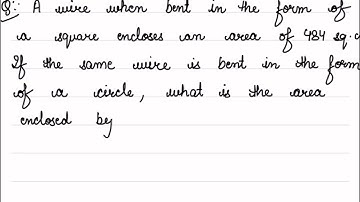 Q:- A wire when bent in the form of
a square encloses an area of 484 sq.c
If the same wire is bent in the form
of a circle, what is the area
enclosed by